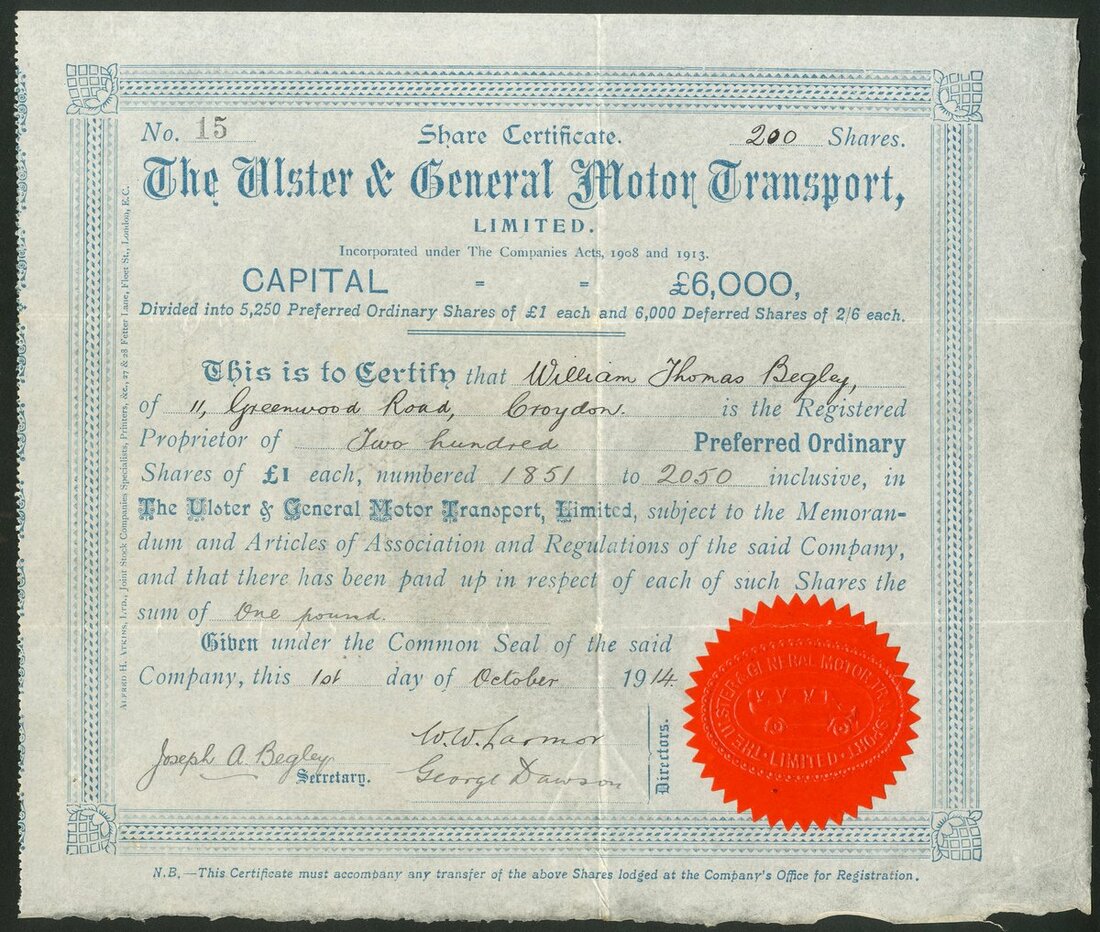 No. 15 Share Certificate. 200 Shares.
The Ulster & General Motor Transport,
LIMITED.
Incorporated under The Companies Acts, 1908 and 1913.
CAPITAL = = £6,000,
Divided into 5,250 Preferred Ordinary Shares of £1 each and 6,000 Deferred Shares of 2/6 each.
This is to Certify that William Thomas Begley,
of 11, Greenwood Road, Croydon. is the Registered
Proprietor of Two hundred Preferred Ordinary
Shares of £1 each, numbered 1851 to 2050 inclusive, in
The Ulster & General Motor Transport, Limited, subject to the Memoran-
dum and Articles of Association and Regulations of the said Company,
and that there has been paid up in respect of each of such Shares the
sum of One pound.
Given under the Common Seal of the said
Company, this 1st day of October 1914.
Joseph A. Begley
Secretary.
W. W. Larmor
George Dawson
Directors.
THE ULSTER & GENERAL MOTOR TRANSPORT
LIMITED
N.B.—This Certificate must accompany any transfer of the above Shares lodged at the Company's Office for Registration.
ALFRED H. ATKINS, LTD., Joint Stock Companies Specialists, Printers, &c., 27 & 28 Fetter Lane, Fleet St., London, E.C.